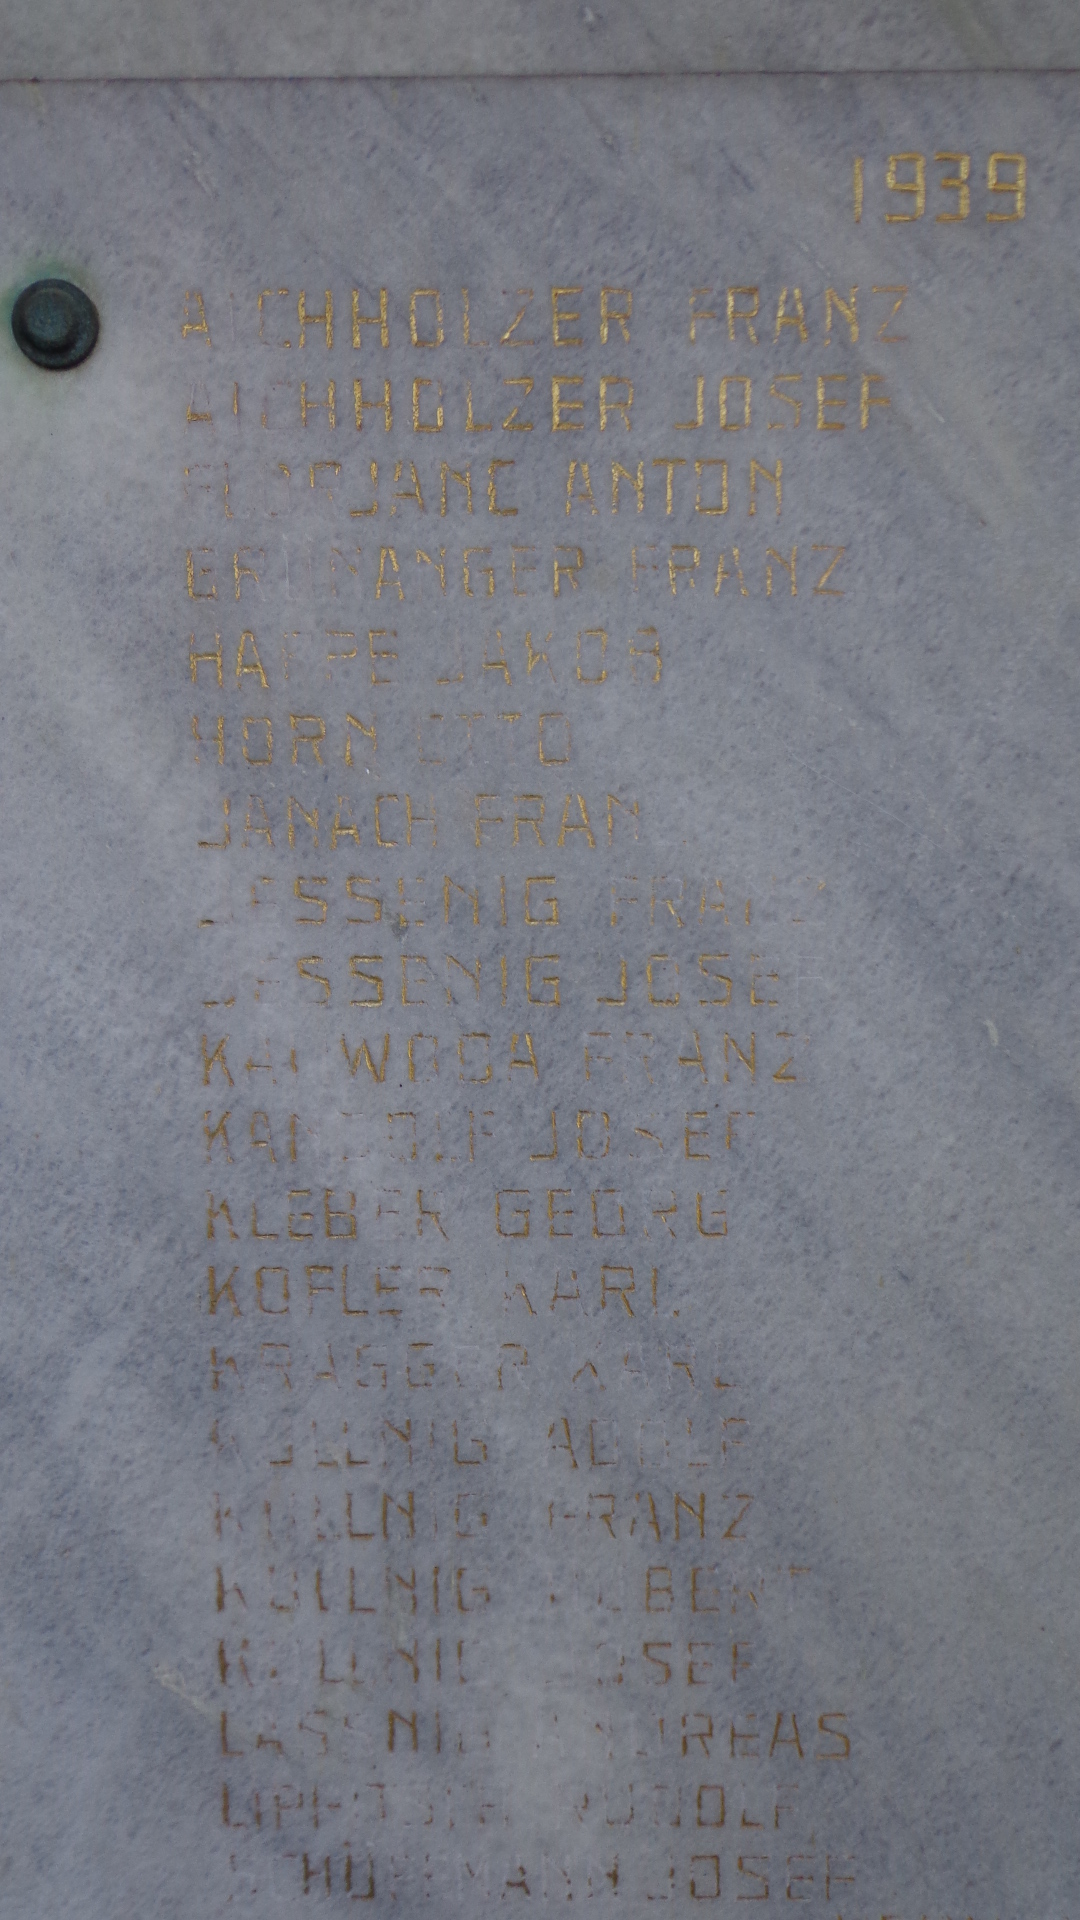 1939
AICHHOLZER FRANZ
AICHHOLZER JOSEF
FLORJANC ANTON
GRÜNANGER FRANZ
JAKOB
HORN OTTO
JANACH FRANZ
JESSENIG FRANZ
JESSENIG JOSEF
FRANZ
KANDOLF JOSEF
KLEBER GEORG
KOFLER KARL
KRAGGER KARL
KÜLLNIG ADOLF
KÜLLNIG FRANZ
KÜLLNIG HUBERT
KÜLLNIG JOSEF
LASSNIG ANDREAS
RUDOLF
JOSEF